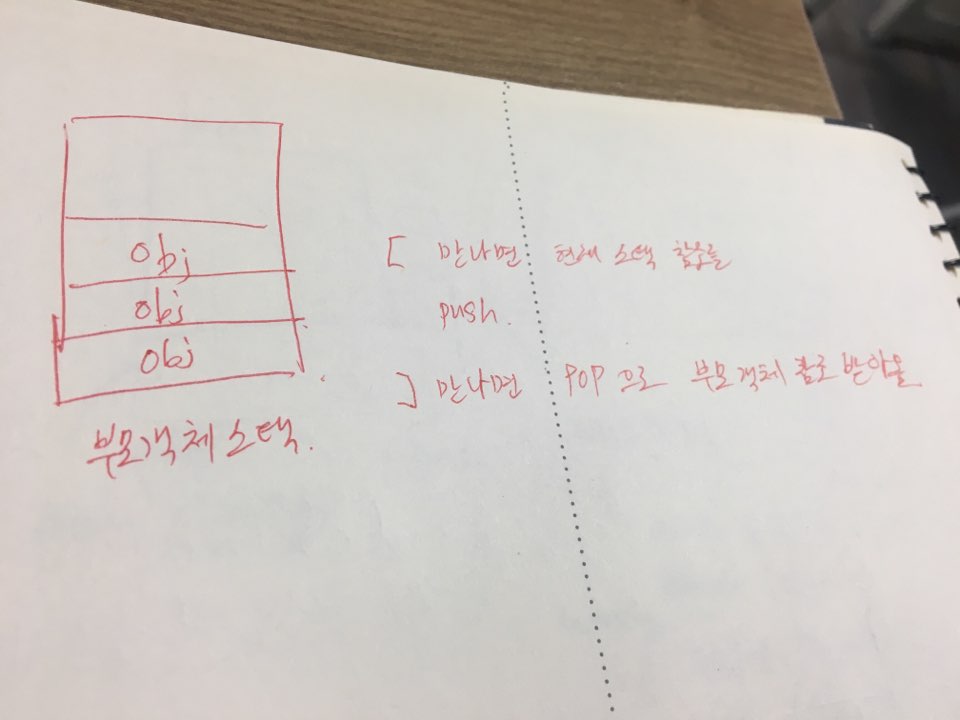 obj
obj
obj
부모객체 스택.
[ 만나면 현재 스택
push.
] 만나면 POP 으로 부모 객체 참조 받아옴